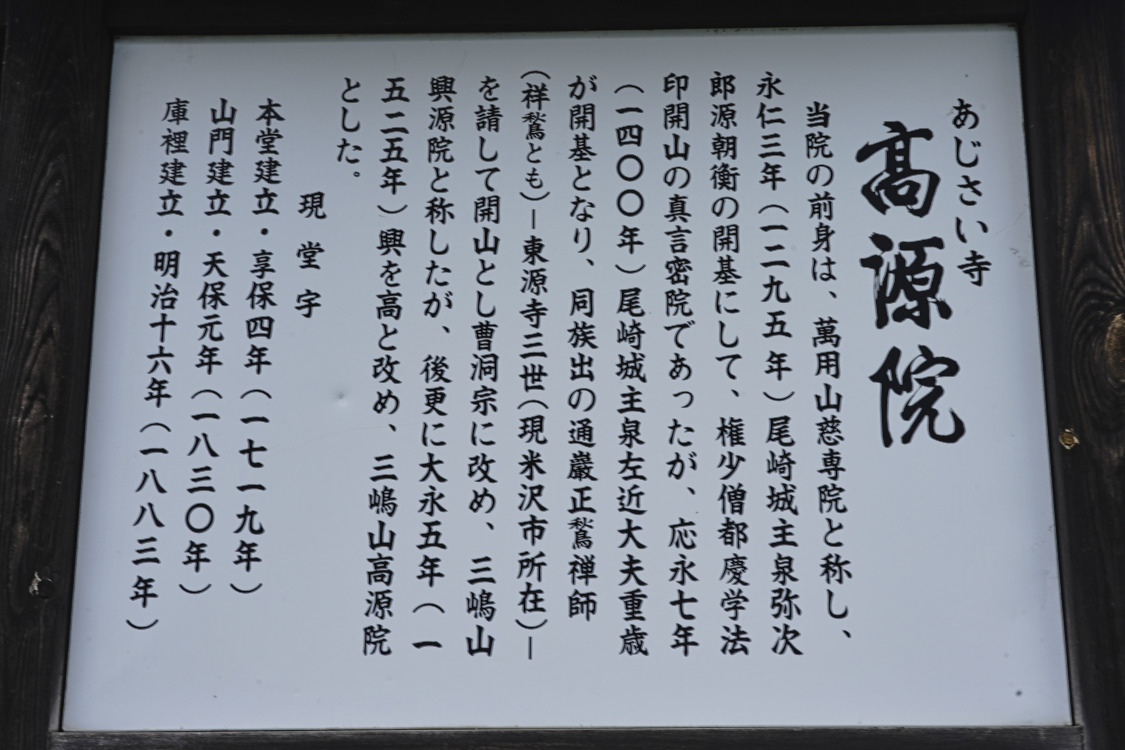 あじさい寺
髙源院
当院の前身は、萬用山慈専院と称し、
永仁三年（一二九五年）尾崎城主泉弥次
郎源朝衡の開基にして、権少僧都慶学法
印開山の真言密院であったが、応永七年
（一四〇〇年）尾崎城主泉左近大夫重歳
が開基となり、同族出の通巖正鶖禅師
（祥鶖とも）―東源寺三世（現米沢市所在）―
を請して開山とし曹洞宗に改め、三嶋山
興源院と称したが、後更に大永五年（一
五二五年）興を高と改め、三嶋山高源院
とした。
現堂宇
本堂建立・享保四年（一七一九年）
山門建立・天保元年（一八三〇年）
庫裡建立・明治十六年（一八八三年）